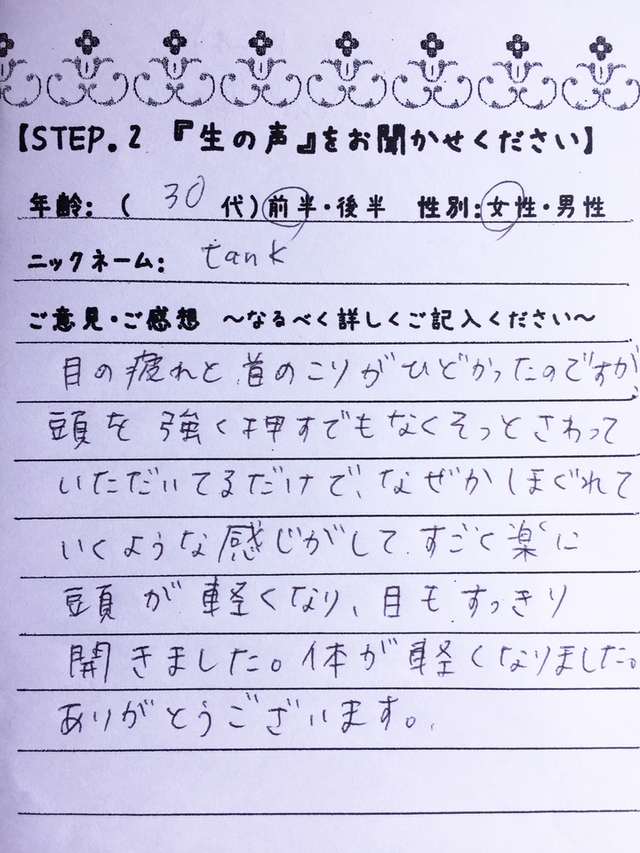 【STEP.2 『生の声』をお聞かせください】
年齢:( 30 代)前半・後半 性別:女性・男性
ニックネーム: tank
ご意見・ご感想 ～なるべく詳しくご記入ください～
目の疲れと首のこりがひどかったのですが、
頭を強く押すでもなくそっとさわって
いただいてるだけで、なぜかほぐれて
いくような感じがして、すごく楽に
頭が軽くなり、目もすっきり
開きました。体が軽くなりました。
ありがとうございます。